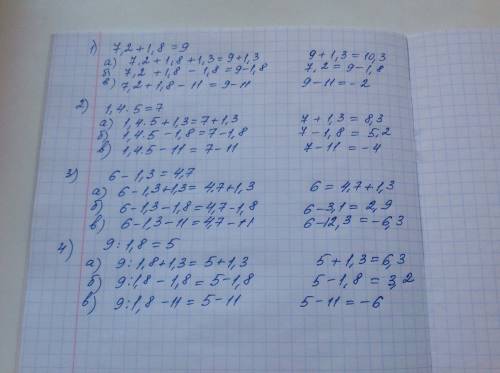 1) 7,2+1,8=9
а) 7,2+1,8+1,3=9+1,3 9+1,3=10,3
б) 7,2+1,8-1,8=9-1,8 7,2=9-1,8
в) 7,2+1,8-11=9-11 9-11=-2
2) 1,4·5=7
а) 1,4·5+1,3=7+1,3 7+1,3=8,3
б) 1,4·5-1,8=7-1,8 7-1,8=5,2
в) 1,4·5-11=7-11 7-11=-4
3) 6-1,3=4,7
а) 6-1,3+1,3=4,7+1,3 6=4,7+1,3
б) 6-1,3-1,8=4,7-1,8 6-3,1=2,9
в) 6-1,3-11=4,7-11 6-12,3=-6,3
4) 9:1,8=5
а) 9:1,8+1,3=5+1,3 5+1,3=6,3
б) 9:1,8-1,8=5-1,8 5-1,8=3,2
в) 9:1,8-11=5-11 5-11=-6